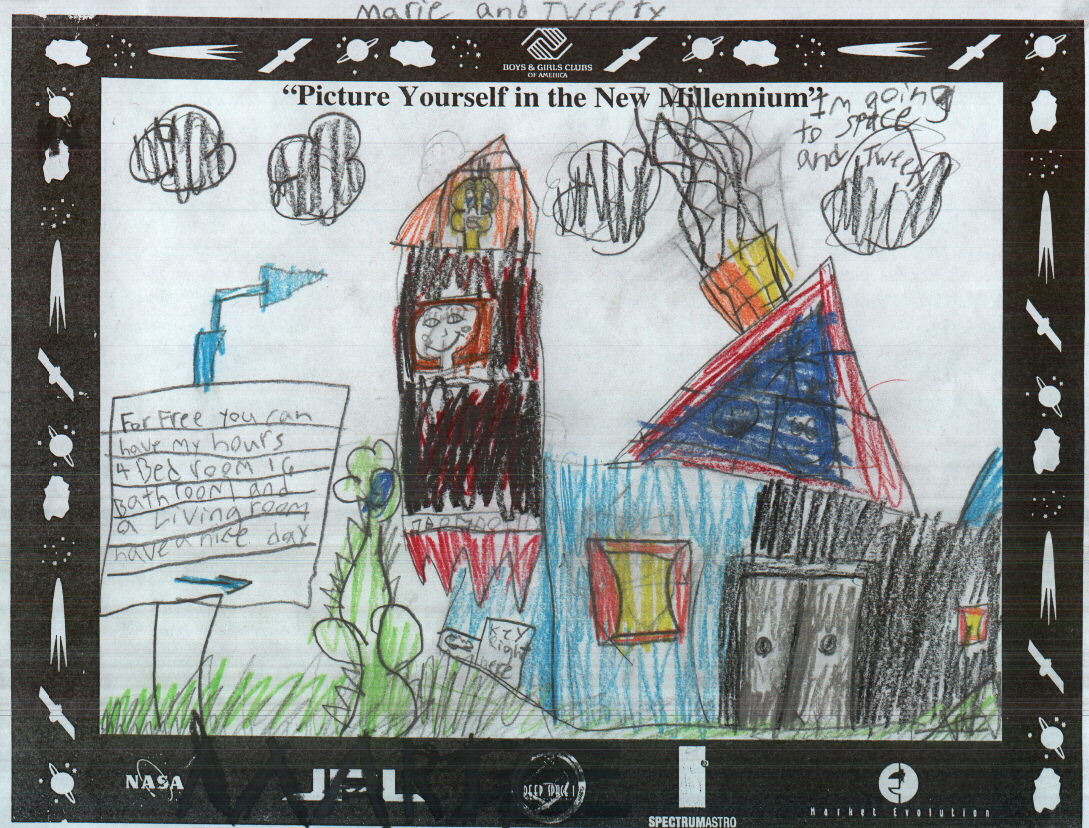 Marie and Tweety
BOYS & GIRLS CLUBS
OF AMERICA
"Picture Yourself in the New Millennium"
I'm going
to space
and Tweety
For Free you can
have my hours
4 Bed room 14
Bathroom and
a Living room
have a nice day
right
here
NASA
JPL
DEEP SPACE 1
SPECTRUMASTRO
Market Evolution